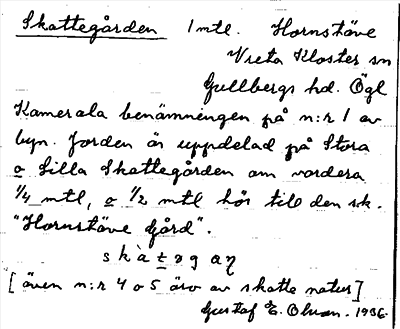 Skattegården 1 mtl. Hornstäve
Vreta Kloster sn
Gullbergs hd. Ögl
Kamerala benämningen på n:r 1 av
byn. Jorden är uppdelad på Stora
o Lilla Skattegården om vardera
1/4 mtl, o 1/2 mtl hör till den sk.
"Hornstäve Gård".
skàtəgaɳ
[även n:r 4 o 5 äro av skatte natur]
Gustaf E. Olsson. 1936.